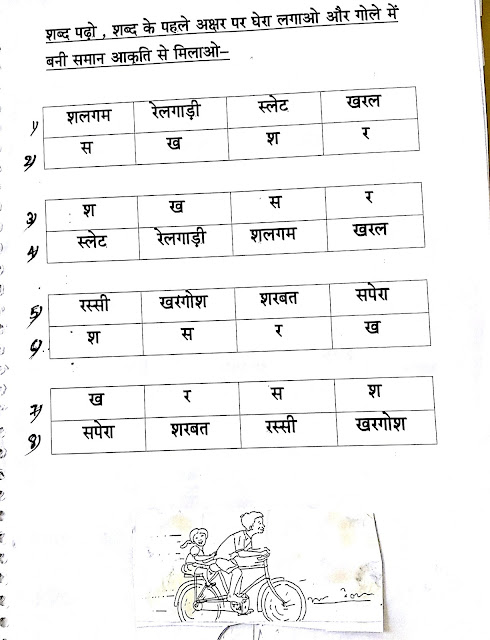 शब्द पढ़ो , शब्द के पहले अक्षर पर घेरा लगाओ और गोले में
बनी समान आकृति से मिलाओ–
1) शलगम रेलगाड़ी स्लेट खरल
2) स ख श र
3) श ख स र
4) स्लेट रेलगाड़ी शलगम खरल
5) रस्सी खरगोश शरबत सपेरा
6) श स र ख
7) ख र स श
8) सपेरा शरबत रस्सी खरगोश